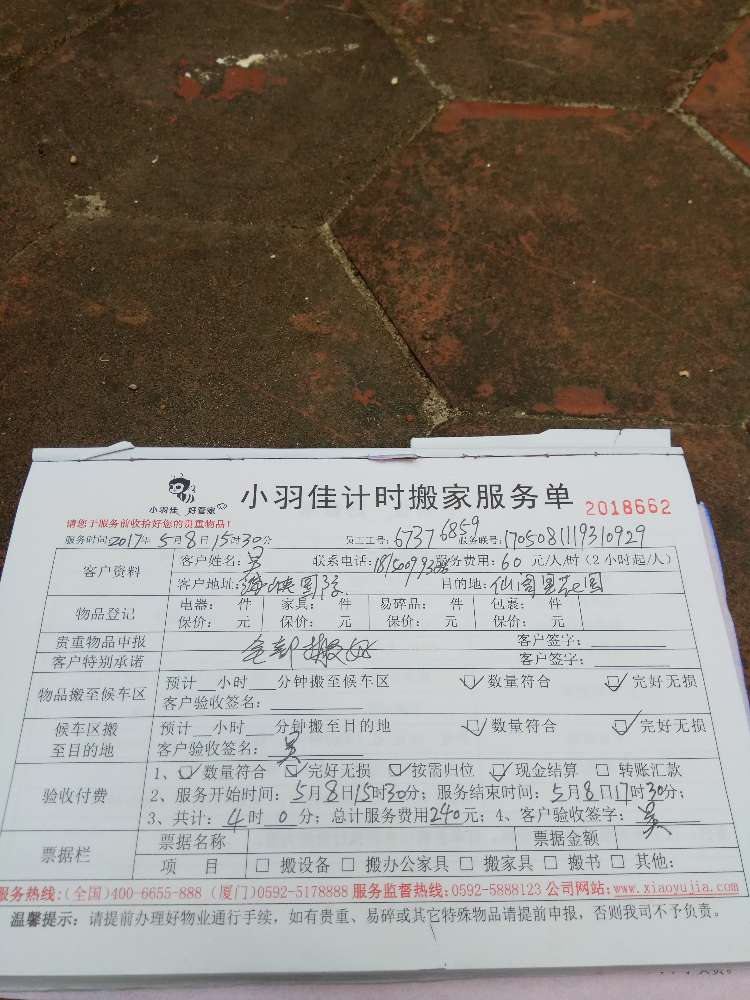 小羽佳 好管家
小羽佳计时搬家服务单 2018662
请您于服务前收拾好您的贵重物品!
服务时间:2017年5月8日15时30分 员工工号:6737 6859 服务联号:1705081119310929
客户资料 客户姓名:吴 联系电话: 服务费用:60 元/人/时(2小时起/人)
客户地址:海峡国际 目的地:仙阁里花园
物品登记 电器: 件 家具: 件 易碎品: 件 包装: 件
保价: 元 保价: 元 保价: 元 保价: 元
贵重物品申报 客户签字:
客户特别承诺 客户签字:
物品搬至候车区 预计__小时___分钟搬至候车区 ☑数量符合 ☑完好无损
客户验收签名:
候车区搬至目的地 预计__小时___分钟搬至目的地 ☑数量符合 ☑完好无损
客户验收签名:吴
验收付费 1、☑数量符合 ☑完好无损 ☑按需归位 ☑现金结算 □ 转账汇款
2、服务开始时间:5月8日15时30分; 服务结束时间:5月8日17时30分;
3、共计:4时0分; 总计服务费用240元; 4、客户验收签字:吴
票据栏 票据名称 票据金额
项 目 □ 搬设备 □ 搬办公家具 □ 搬家具 □ 搬书 □ 其他:
服务热线:(全国)400-6655-888 (厦门)0592-5178888 服务监督热线:0592-5888123 公司网站:www.xiaoyujia.com
温馨提示: 请提前办理好物业通行手续, 如有贵重、易碎或其它特殊物品请提前申报, 否则我司不予负责。